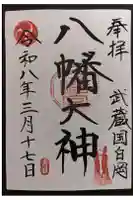 奉拝
武蔵国白岡
八幡大神
令和八年三月十七日